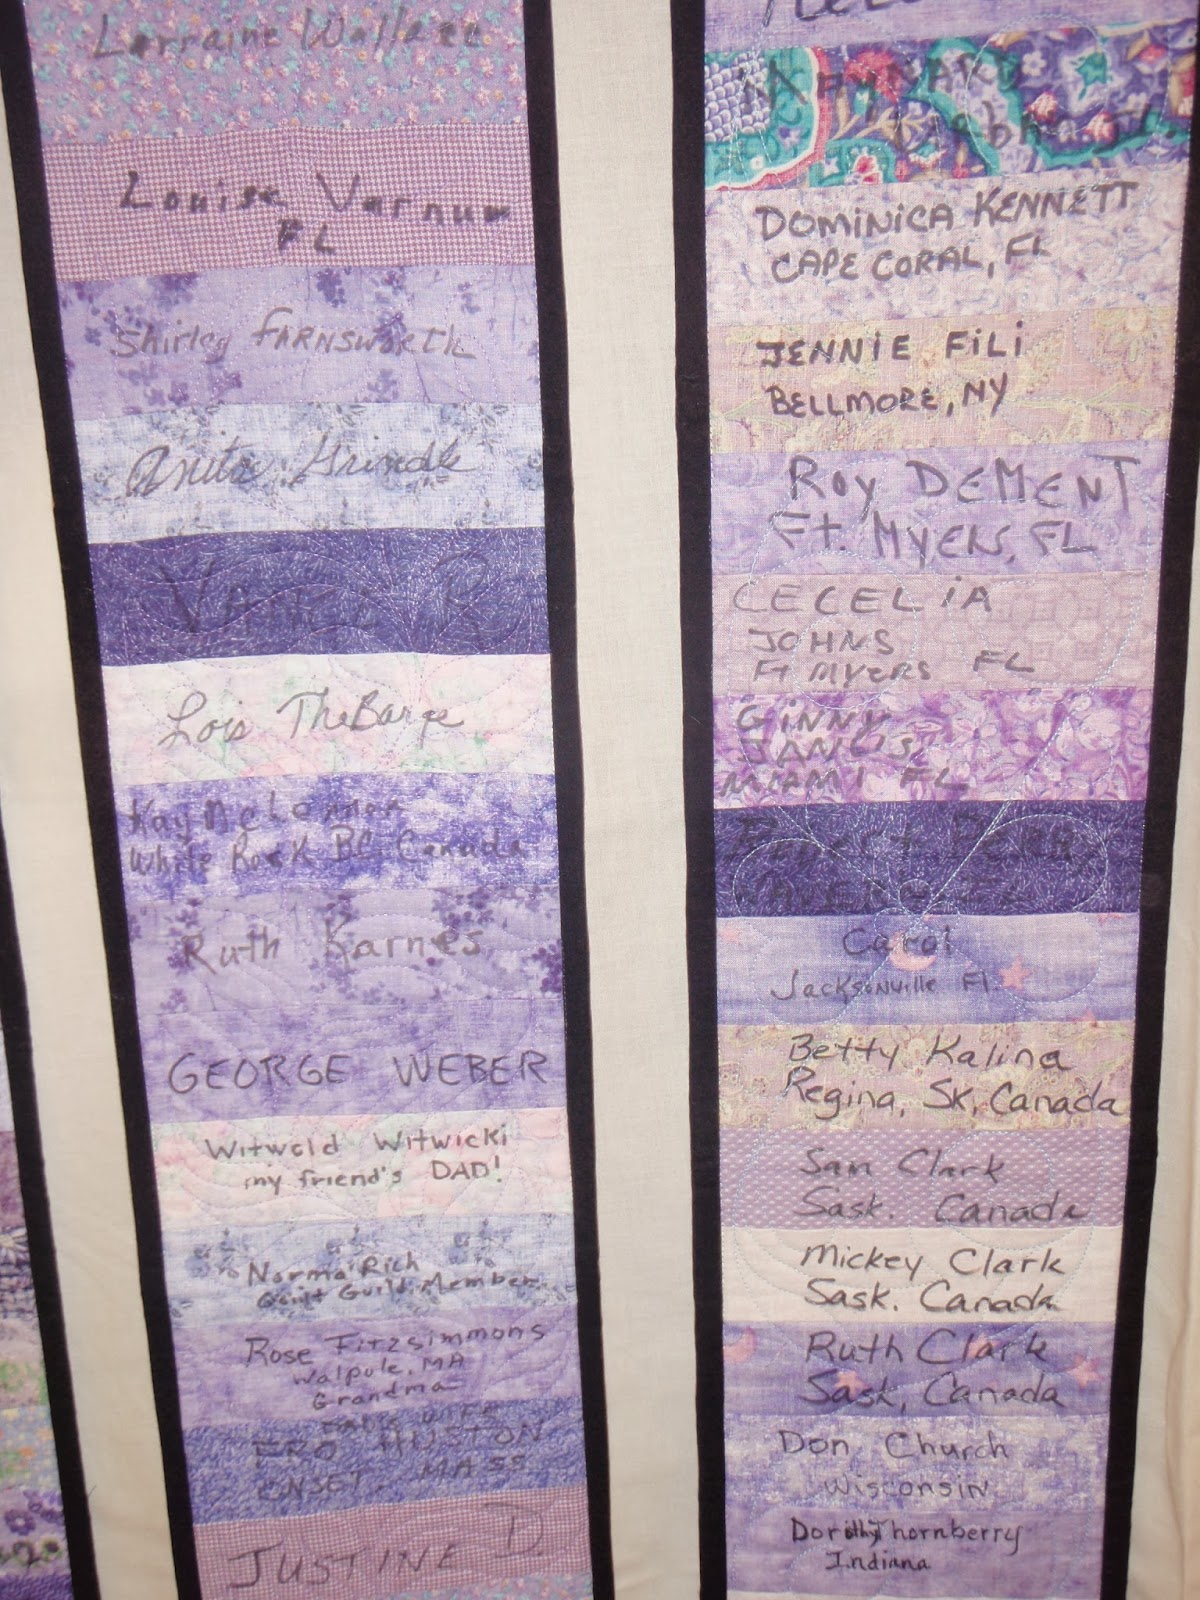 Lorraine Wallace
Louise Varnum
FL
Shirley FARNSWORTH
Anita Grindle
VANCE R
Lois TheBarge
Kay McLennon
White Rock BC, Canada
Ruth Karnes
GEORGE WEBER
Witwold Witwicki
my friend's DAD!
Norma Rich
Quilt Guild Member
Rose Fitzsimmons
Walpole, MA
Grandma
WIFE
HUSTON
ONSET. MASS
JUSTINE D.
DOMINICA KENNETT
CAPE CORAL, FL
JENNIE FILI
BELLMORE, NY
ROY DEMENT
FT. MYERS, FL
CECELIA
JOHNS
FT MYERS FL
GINNY
JANUS
MIAMI FL
FL
Carol
Jacksonville Fl.
Betty Kalina
Regina, SK, Canada
Sam Clark
Sask. Canada
Mickey Clark
Sask. Canada
Ruth Clark
Sask, Canada
Don Church
Wisconsin
Dorothy Thornberry
Indiana